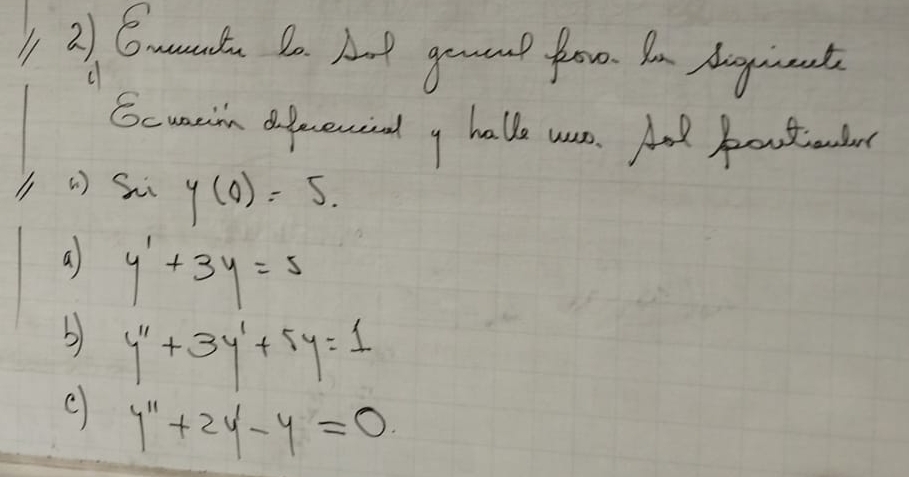 2) Encuentre la Sol general para la siguiente
i)
Ecuación diferencial y halle una Sol particular
ii) Si y(0) = 5.
a) y' + 3y = 5
b) y'' + 3y' + 5y = 1
c) y'' + 2y' - y = 0.